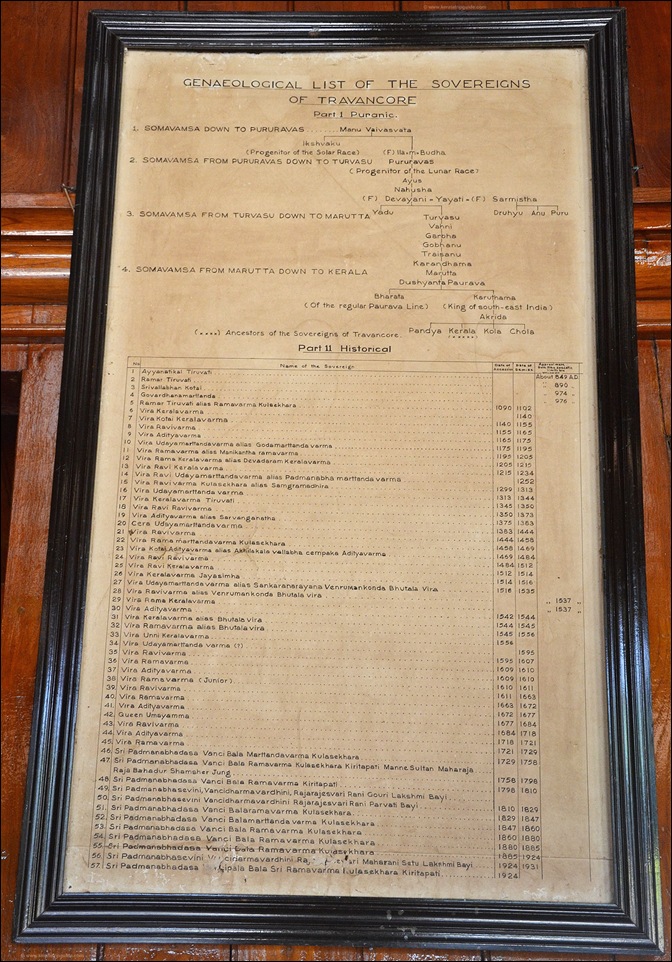 GENAEOLOGICAL LIST OF THE SOVEREIGNS
OF TRAVANCORE
Part I Puranic.
1. SOMAVAMSA DOWN TO PURURAVAS ...... Manu Vaivasvata
Ikshvaku
(Progenitor of the Solar Race) (F) Ila = Budha
2. SOMAVAMSA FROM PURURAVAS DOWN TO TURVASU Pururavas
(Progenitor of the Lunar Race)
Ayus
Nahusha
(F) Devayani = Yayati = (F) Sarmistha
Yadu Druhyu Anu Puru
3. SOMAVAMSA FROM TURVASU DOWN TO MARUTTA Turvasu
Vahni
Garbha
Gobhanu
Traisanu
Karandhama
4. SOMAVAMSA FROM MARUTTA DOWN TO KERALA Marutta
Dushyanta Paurava
Bharata Karuthama
(Of the regular Paurava Line) (King of south-east India)
Akrida
(....) Ancestors of the Sovereigns of Travancore. Pandya Kerala Kola Chola
Part 11 Historical
No Name of the Sovereign Date of Accession Date of Demise
1 Ayyanatikal Tiruvati About 849 A.D
2 Ramar Tiruvati „ 890 „
3 Srivallabhan Kotai „ 974 „
4 Govardhanamarttanda „ 976 „
5 Ramar Tiruvati alias Ramavarma Kulasekhara 1090 1102
6 Vira Keralavarma
7 Vira Kotai Keralavarma 1140
8 Vira Ravivarma 1140 1155
9 Vira Adityavarma 1155 1165
10 Vira Udayamarttandavarma alias Godamarttandavarma 1165 1175
11 Vira Ramavarma alias Manikantha ramavarma 1175 1195
12 Vira Rama Keralavarma alias Devadaram Keralavarma 1195 1205
13 Vira Ravi Keralavarma 1205 1215
14 Vira Ravi Udayamarttandavarma alias Padmanabha marttandavarma 1215 1234
15 Vira Ravivarma Kulasekhara alias Samgramadhira 1252
16 Vira Udayamarttandavarma 1299 1313
17 Vira Keralavarma Tiruvati 1313 1344
18 Vira Ravi Ravivarma 1345 1350
19 Vira Adityavarma alias Sarvanganatha 1350 1373
20 Cera Udayamarttandavarma 1375 1383
21 Vira Ravivarma 1383 1444
22 Vira Rama marttandavarma Kulasekhara 1444 1458
23 Vira Kotai Adityavarma alias Akhilakala vallabha cempaka Adityavarma 1458 1469
24 Vira Ravi Ravivarma 1469 1484
25 Vira Ravi Keralavarma 1484 1512
26 Vira Keralavarma Jayasimha 1512 1514
27 Vira Udayamarttandavarma alias Sankaranarayana Venrumankonda Bhutala Vira 1514 1516
28 Vira Ravivarma alias Venrumankonda Bhutala vira 1516 1535
29 Vira Rama Keralavarma „ 1537 „
30 Vira Adityavarma „ 1537 „
31 Vira Keralavarma alias Bhutala vira 1542 1544
32 Vira Ramavarma alias Bhutala vira 1544 1545
33 Vira Unni Keralavarma 1545 1556
34 Vira Udayamarttanda varma (?) 1556
35 Vira Ravivarma 1595
36 Vira Ramavarma 1595 1607
37 Vira Adityavarma 1609 1610
38 Vira Ramavarma (Junior) 1609 1610
39. Vira Ravivarma 1610 1611
40. Vira Ramavarma 1611 1663
41. Vira Adityavarma 1663 1672
42. Queen Umayamma 1672 1677
43. Vira Ravivarma 1677 1684
44. Vira Adityavarma 1684 1718
45. Vira Ramavarma 1718 1721
46. Sri Padmanabhadasa Vanci Bala Marttandavarma Kulasekhara 1721 1729
47. Sri Padmanabhadasa Vanci Bala Ramavarma Kulasekhara Kiritapati Manne Sultan Maharaja 1729 1758
Raja Bahadur Shamsher Jung
48. Sri Padmanabhadasa Vanci Bala Ramavarma Kiritapati 1758 1798
49. Sri Padmanabhasevini, Vancidharmavardhini, Rajarajesvari Rani Gouri Lakshmi Bayi 1798 1810
50. Sri Padmanabhasevini Vancidharmavardhini Rajarajesvari Rani Parvati Bayi
51. Sri Padmanabhadasa Vanci Balaramavarma Kulasekhara 1810 1829
52. Sri Padmanabhadasa Vanci Balamarttandavarma Kulasekhara 1829 1847
53. Sri Padmanabhadasa Vanci Bala Ramavarma Kulasekhara 1847 1860
54. Sri Padmanabhadasa Vanci Bala Ramavarma Kulasekhara 1860 1880
55. Sri Padmanabhadasa Vanci Bala Ramavarma Kulasekhara 1880 1885
56. Sri Padmanabhasevini Maharani Setu Lakshmi Bayi 1885 1924
57. Sri Padmanabhadasa Bala Sri Ramavarma Kulasekhara Kiritapati 1924 1931
1924